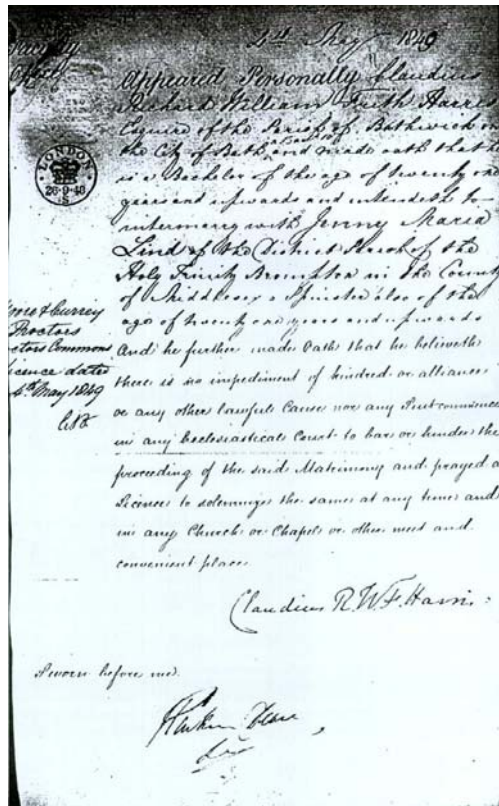 Faculty
Office
4th May 1849
Appeared Personally Claudius
Richard William Frith Harris
Esquire of the Parish of Bathwick in
the City of Bath and made oath that he
is a Bachelor of the age of twenty one
years and upwards and intendeth to
intermarry with Jenny Maria
Lind of the District Parish of the
Holy Trinity Brompton in the County
of Middlesex a Spinster also of the
age of twenty one years and upwards
And he further made Oath that he believeth
there is no impediment of kindred or alliance
or any other lawful Cause nor any Suit commenced
in any Ecclesiastical Court to bar or hinder the
proceeding of the said Matrimony and prayed a
Licence to solemnize the same at any time and
in any Church or Chapel or other meet and
convenient place.
LONDON
26·9·40
S
Currey
Proctors
ctors Commons
icence dated
4th May 1849
Claudius R. W. F. Harris
Sworn before me.